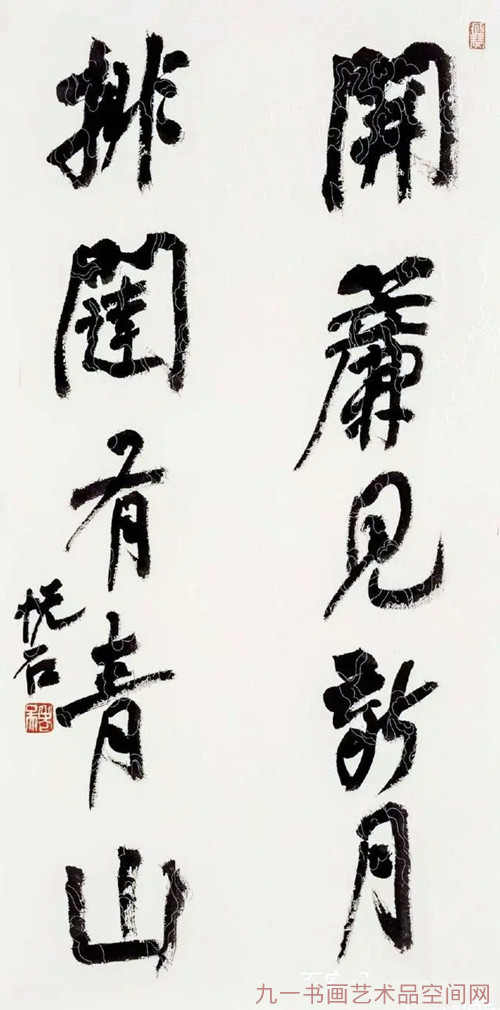 開簾見新月
排闥有青山
悦石
九一书画艺术品空间网